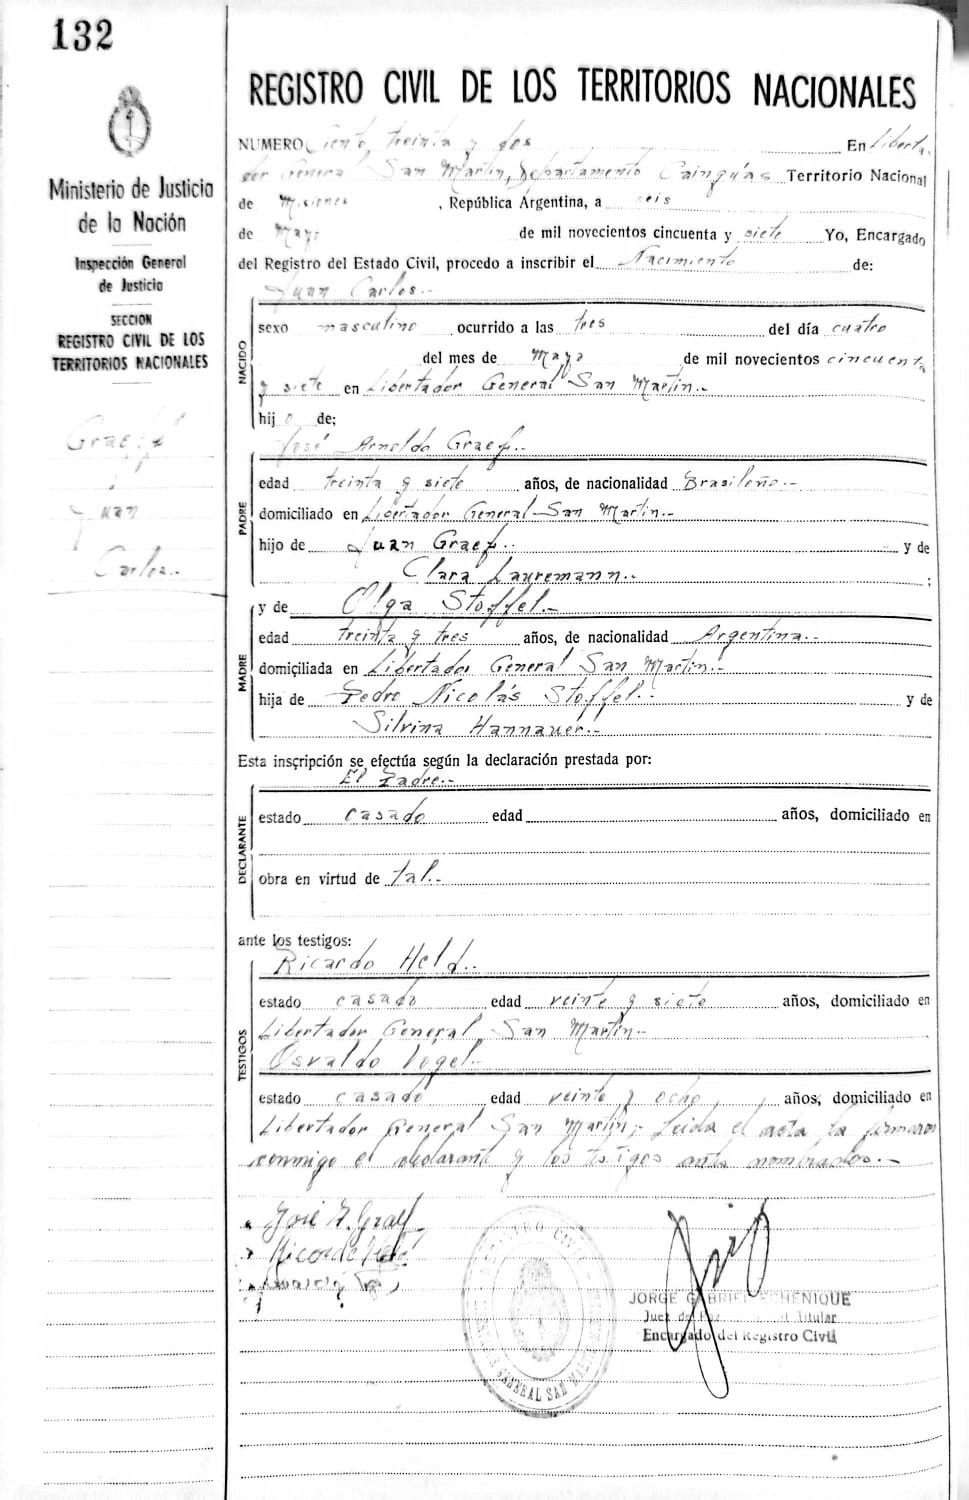 132
Ministerio de Justicia
de la Nación
Inspección General
de Justicia
SECCION
REGISTRO CIVIL DE LOS
TERRITORIOS NACIONALES
Graeff
Juan
Carlos..
REGISTRO CIVIL DE LOS TERRITORIOS NACIONALES
NUMERO Ciento treinta y dos En Liberta-
dor General San Martin, Departamento Cainguás Territorio Nacional
de Misiones , República Argentina, a seis
de Mayo de mil novecientos cincuenta y siete Yo, Encargado
del Registro del Estado Civil, procedo a inscribir el Nacimiento de:
Juan Carlos.-
NACIDO
sexo masculino ocurrido a las tres del día cuatro
del mes de Mayo de mil novecientos cincuenta
y siete en Libertador General San Martin.-
hijo de;
José Arnoldo Graef..
PADRE
edad treinta y siete años, de nacionalidad Brasileño.-
domiciliado en Libertador General San Martin.-
hijo de Juan Graef.. y de
Clara Lauremann.. ;
y de Olga Stoffel.-
MADRE
edad treinta y tres años, de nacionalidad Argentina.-
domiciliada en Libertador General San Martin.-
hija de Pedro Nicolás Stoffel.- y de
Silvina Hannauer.-
Esta inscripción se efectúa según la declaración prestada por:
El Padre.-
DECLARANTE
estado casado edad años, domiciliado en
obra en virtud de tal.-
ante los testigos:
Ricardo Held..
TESTIGOS
estado casado edad veinte y siete años, domiciliado en
Libertador General San Martin.-
Osvaldo Vogel.-
estado casado edad veinte y ocho, años, domiciliado en
Libertador General San Martin,- Leida el acta la firmaron
conmigo el declarante y los testigos antes nombrados.-
José A. Graef
Ricardo Held
REGISTRO CIVIL
GENERAL SAN MARTIN
JORGE GABRIEL ECHENIQUE
Juez de Paz Titular
Encargado del Registro Civil